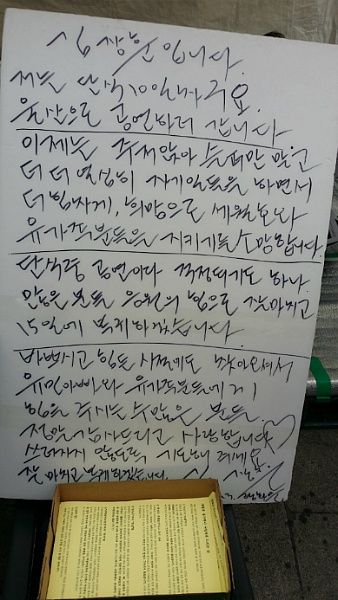 입니다.
저는 단식 10일차구요.
울산으로 공연하러 갑니다.
이제는 주저앉아 슬퍼만 말고
더 더 열심히 자기일들을 하면서
더 힘차게, 희망으로 세월호와
유가족분들을 지키기를 소망합니다.
단식중 공연이라 걱정되기도 하나
많은 분들 응원의 힘으로 잘 마치고
15일에 복귀하겠습니다.
바쁘시고 힘든 사정에도 찾아오셔서
유민아빠와 유가족분들에게
힘을 주시는 수많은 분들.
정말 감사드리고 사랑합니다
쓰러지지 않도록 기도해 주세요
잘 마치고 복귀하겠습니다.